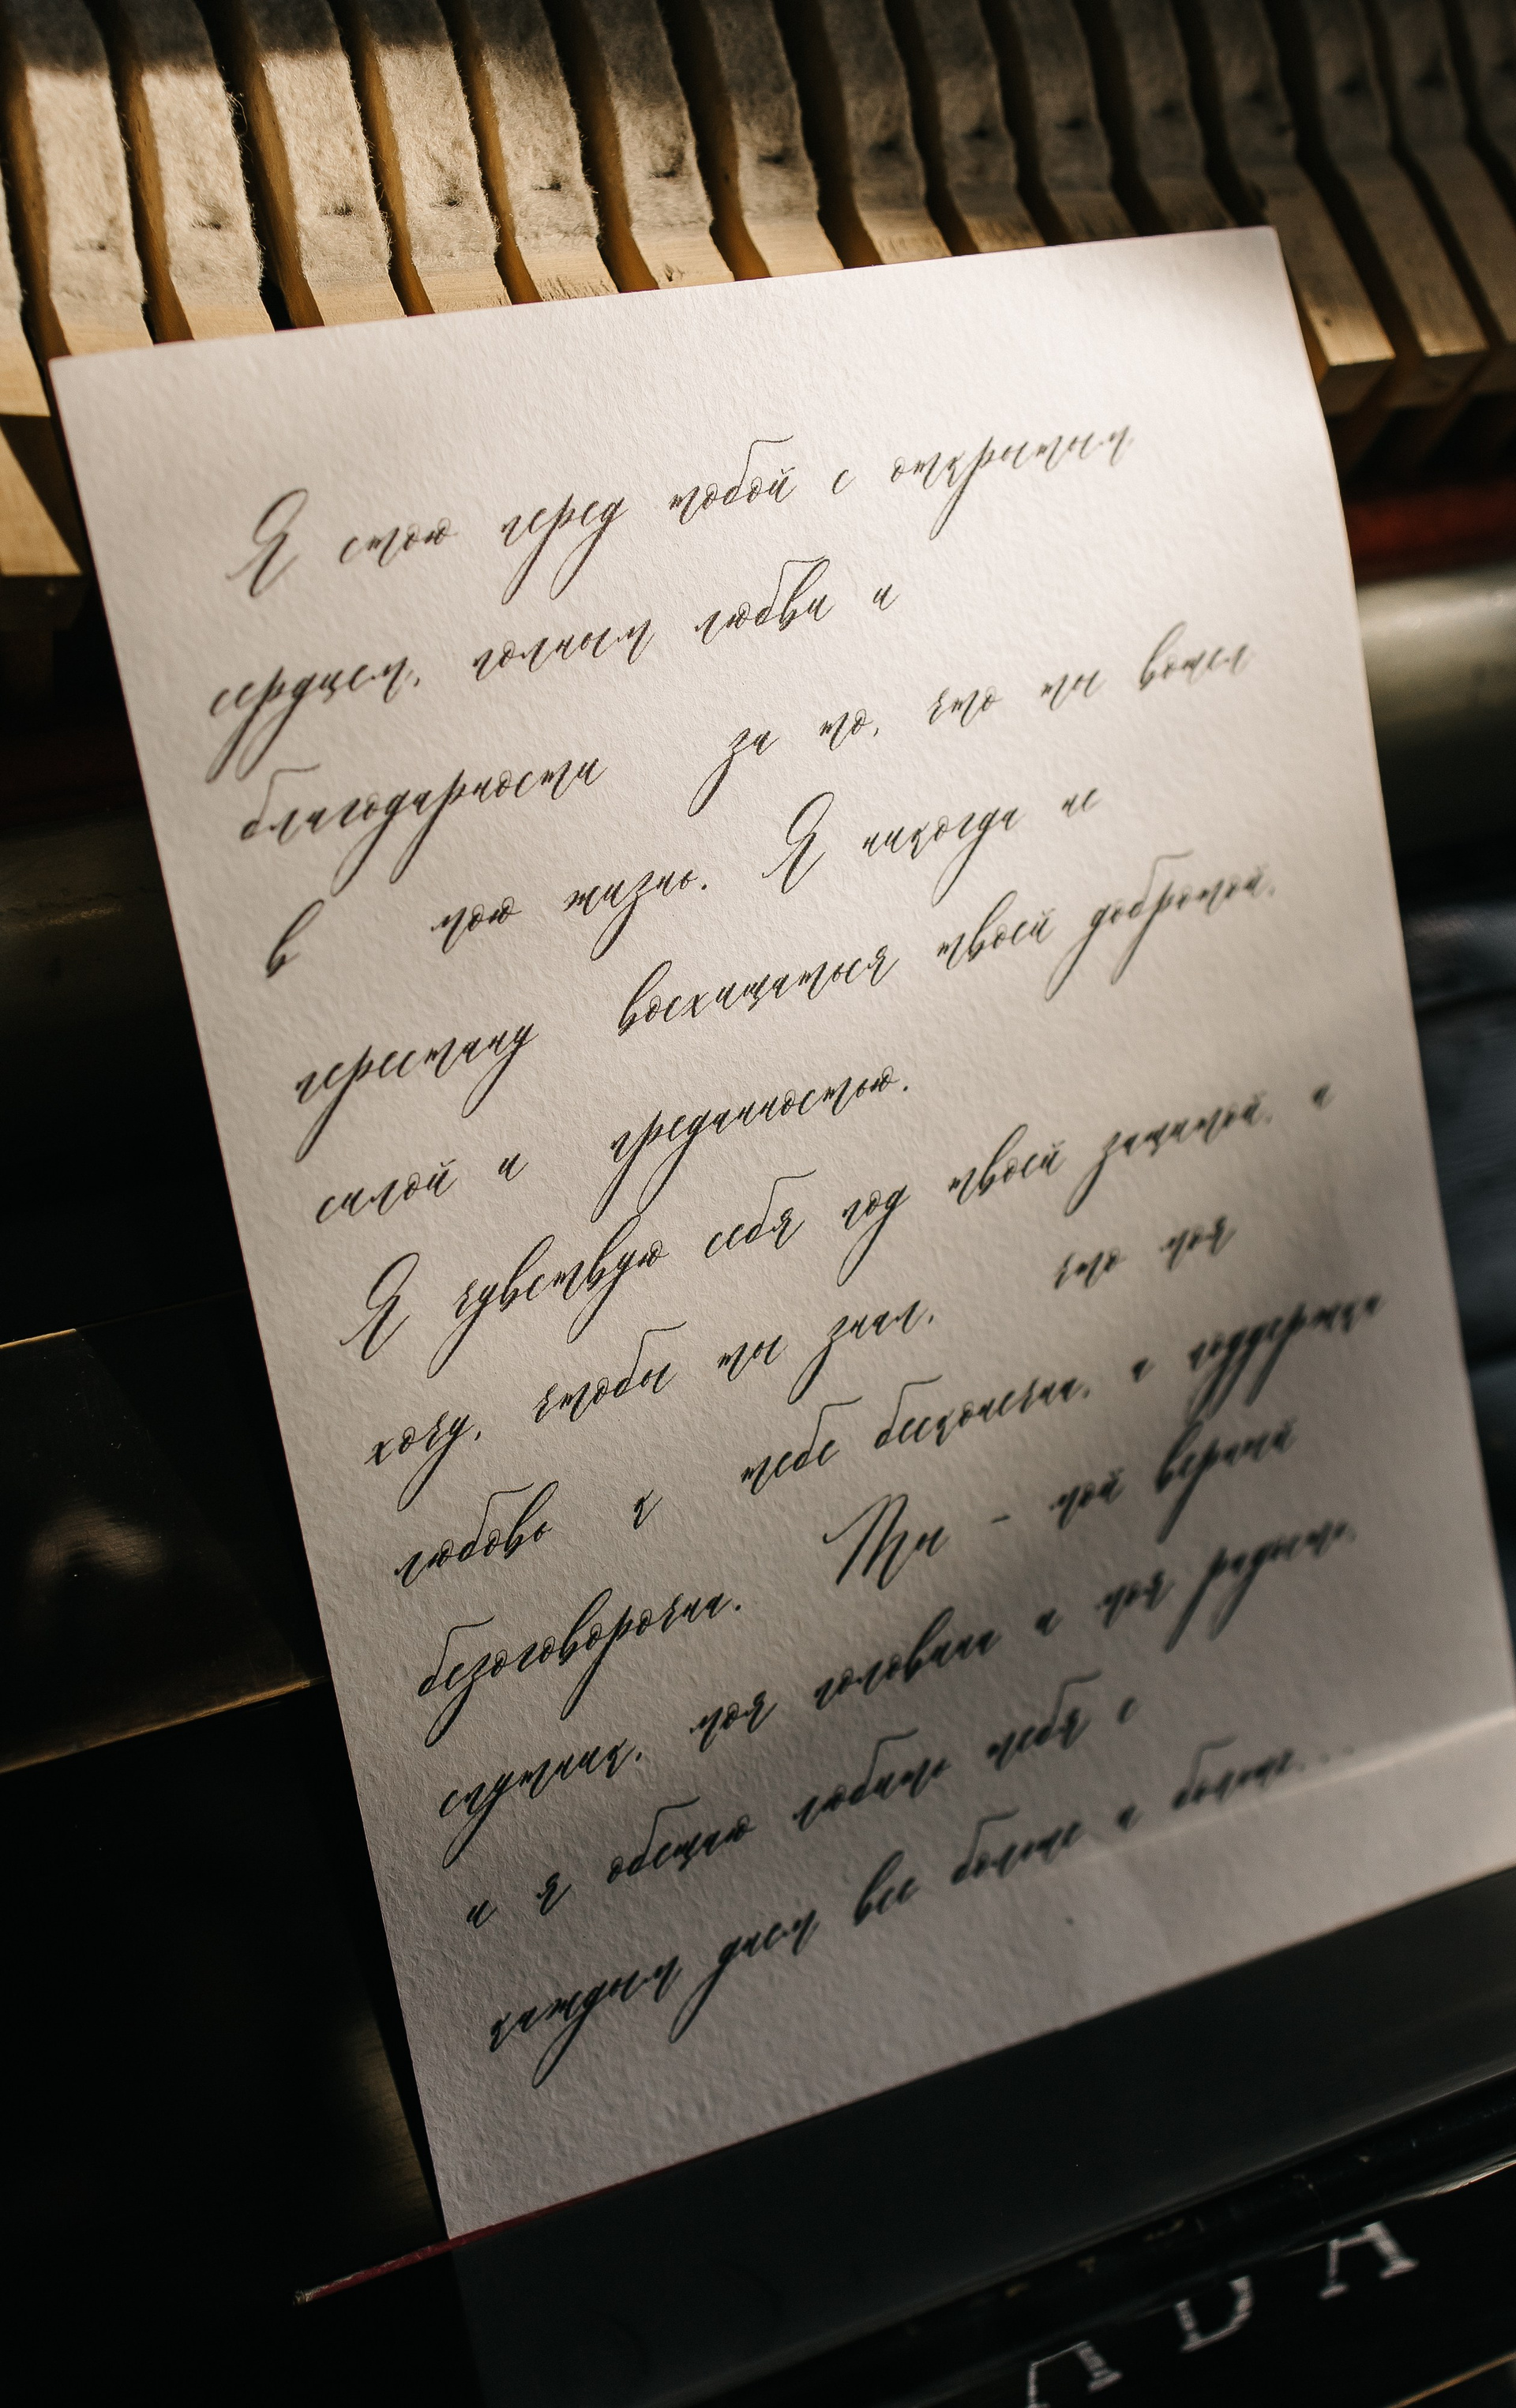 Я стою перед тобой с открытым
сердцем, полным любви и
благодарности за то, что ты вошел
в мою жизнь. Я никогда не
перестану восхищаться твоей добротой,
силой и преданностью.
Я чувствую себя под твоей защитой, и
хочу, чтобы ты знал, что моя
любовь к тебе бесконечна, и поддержка
безоговорочна. Ты - мой верный
спутник, моя половина и моя радость,
и я обещаю любить тебя с
каждым днем все больше и больше...